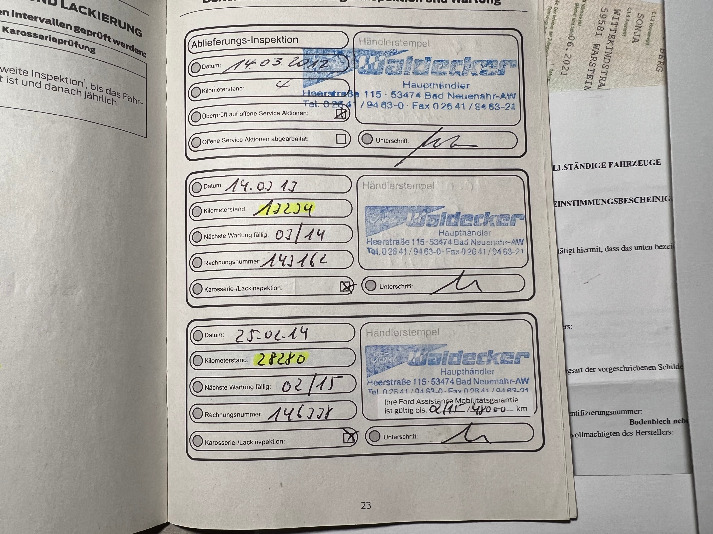 ND LACKIERUNG
en Intervallen geprüft werden:
Karosserieprüfung
weite Inspektion', bis das Fahr-
t ist und danach jährlich
Ablieferungs-Inspektion
Datum: 14.03.2012
Kilometerstand:
Überprüft auf offene Service Aktionen:
Offene Service Aktionen abgearbeitet:
Händlerstempel
Waldecker
Haupthändler
Heerstraße 115 · 53474 Bad Neuenahr-AW
Tel. 0 26 41 / 94 63-0 · Fax 0 26 41 / 94 63-21
Unterschrift:
Datum: 14.03.13
Kilometerstand: 13234
Nächste Wartung fällig: 03/14
Rechnungsnummer: 143162
Karosserie-/Lackinspektion:
Händlerstempel
Waldecker
Haupthändler
Heerstraße 115 · 53474 Bad Neuenahr-AW
Tel. 0 26 41 / 94 63-0 · Fax 0 26 41 / 94 63-21
Unterschrift:
Datum: 25.02.14
Kilometerstand: 28280
Nächste Wartung fällig: 02/15
Rechnungsnummer: 146338
Karosserie-/Lackinspektion:
Händlerstempel
Waldecker
Haupthändler
Heerstraße 115 · 53474 Bad Neuenahr-AW
Tel. 0 26 41 / 94 63-0 · Fax 0 26 41 / 94 63-21
Ihre Ford Assistance Mobilitätsgarantie
ist gültig bis 02/15 / 48000 km
Unterschrift:
23
SONJA
WITTEKINDSTRA
59581 WARSTEIN
06.2021
LLSTÄNDIGE FAHRZEUGE
EINSTIMMUNGSBESCHEINIG
ätigt hiermit, dass das unten bezei
ers:
gesamt der vorgeschriebenen Schilde
entifizierungsnummer:
Bodenblech neb
vollmächtigten des Herstellers: